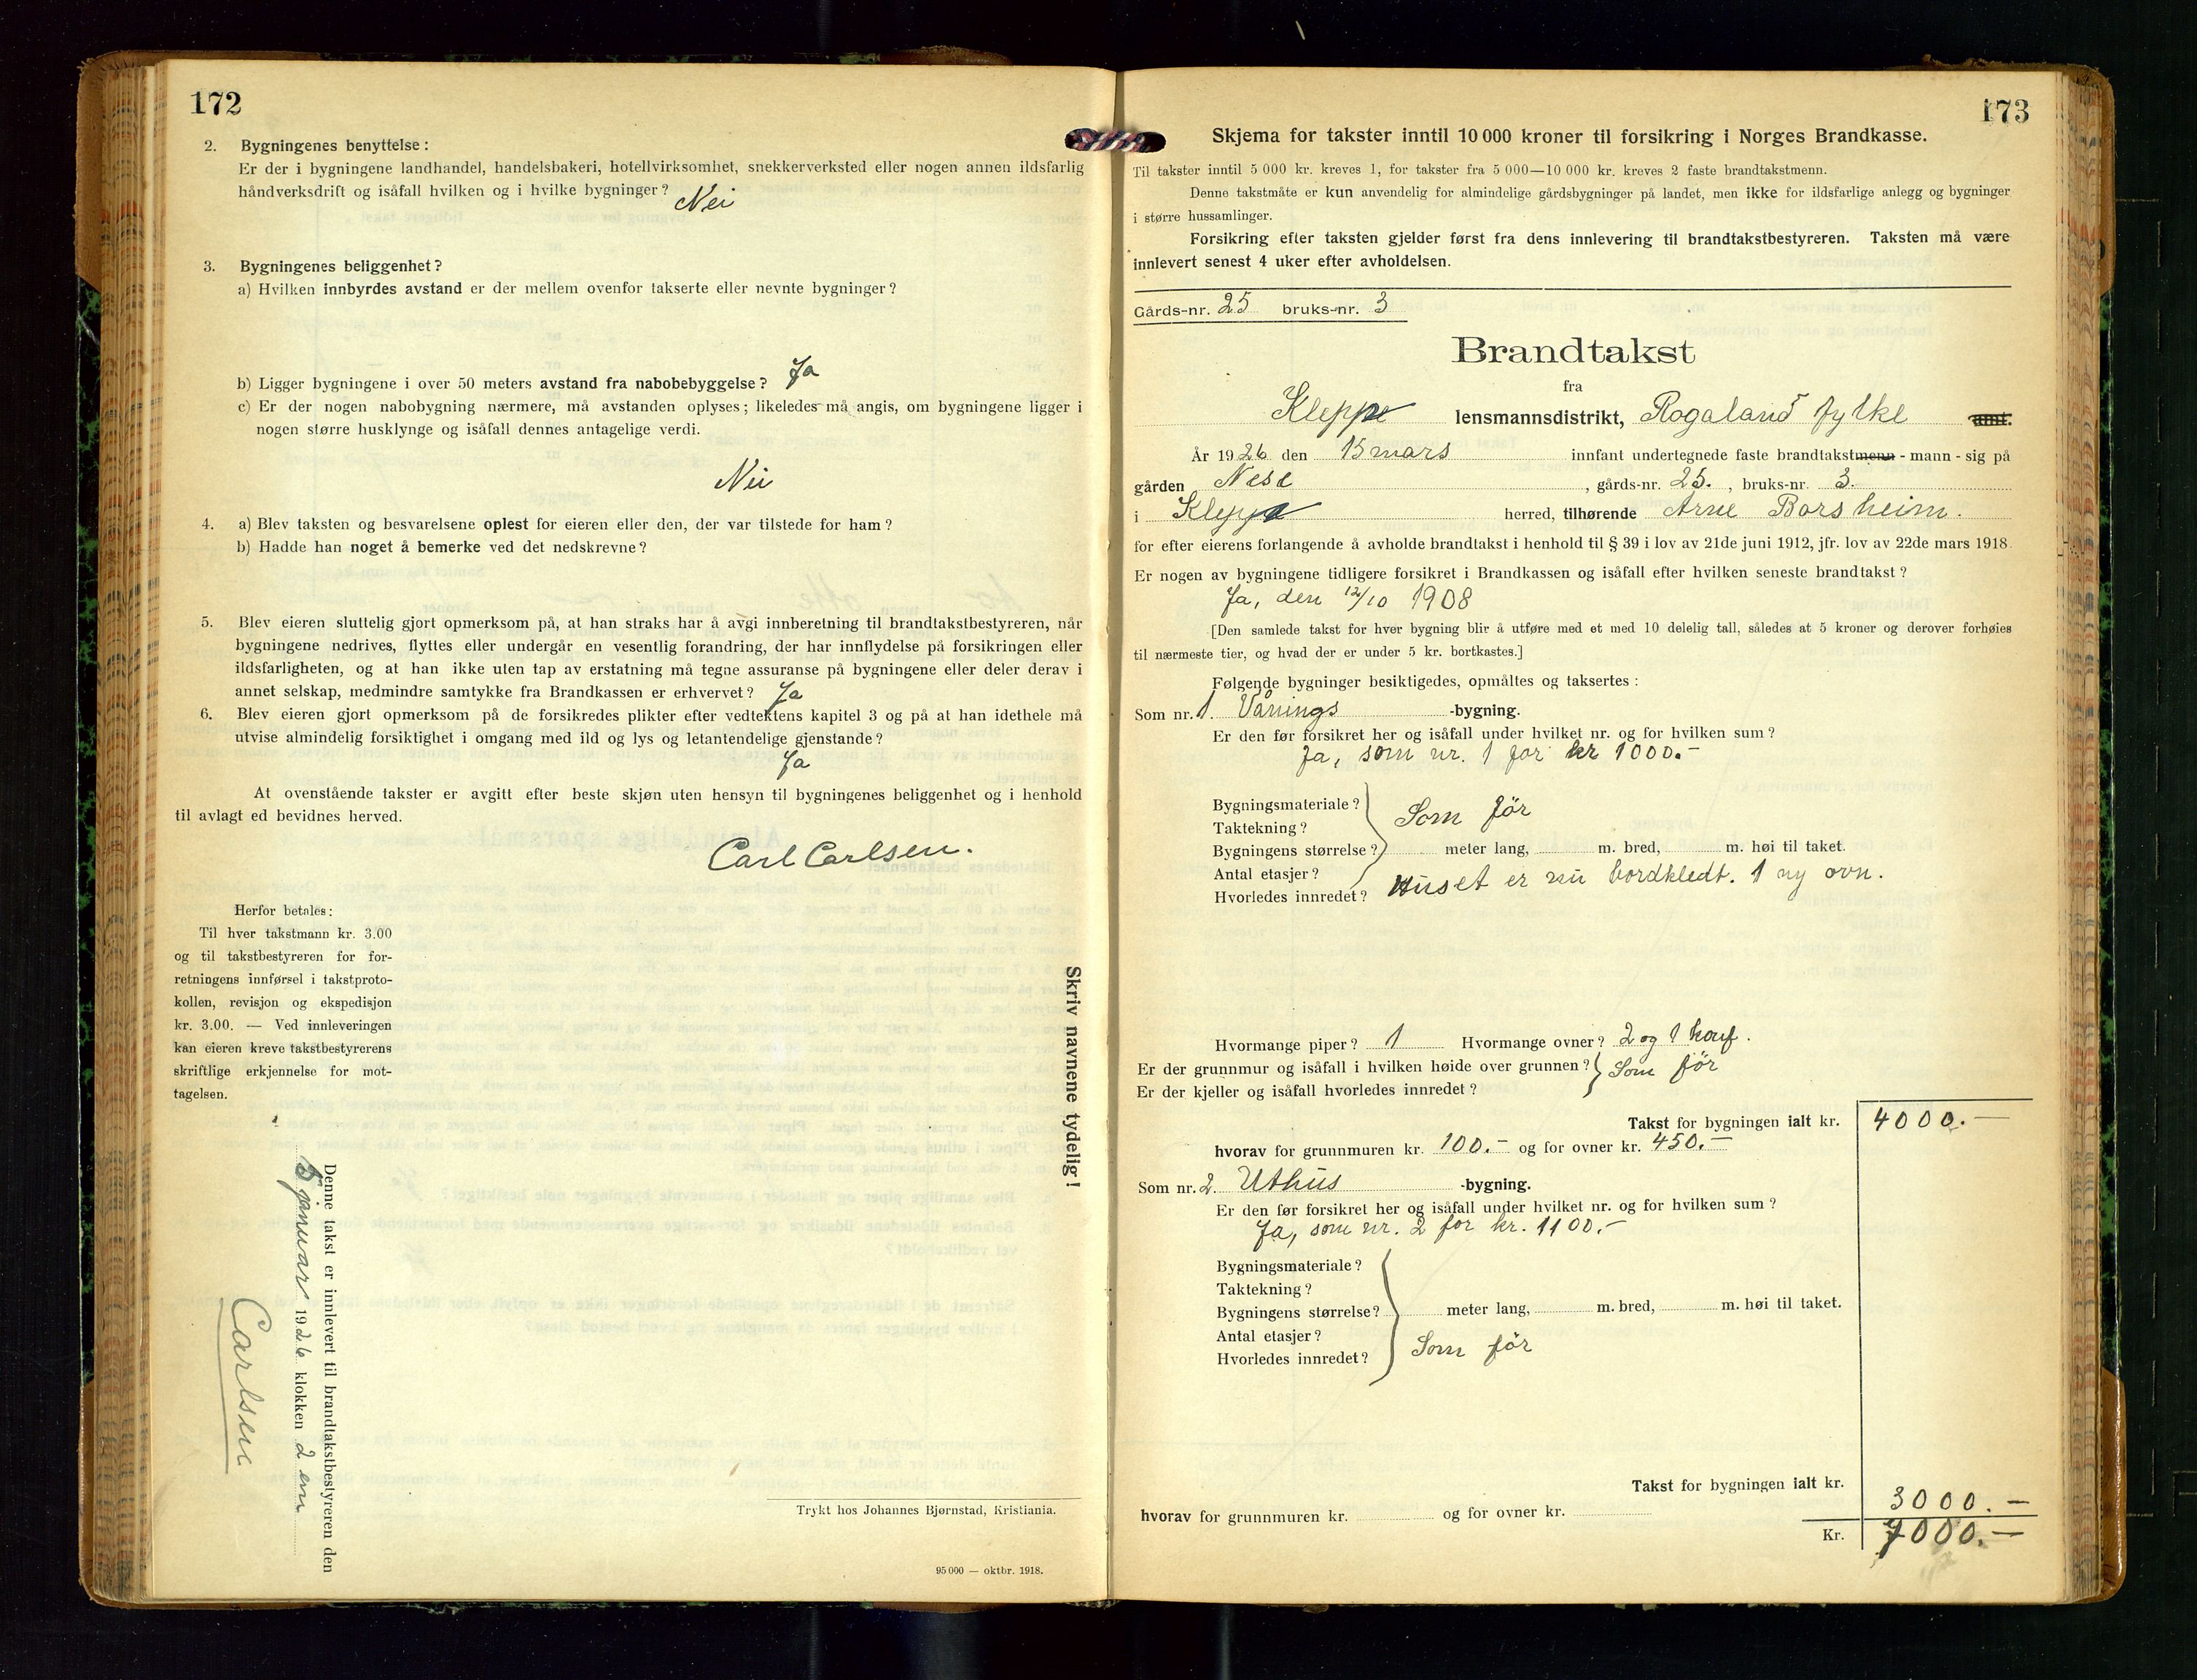 172
2. Bygningenes benyttelse:
Er der i bygningene landhandel, handelsbakeri, hotellvirksomhet, snekkerverksted eller nogen annen ildsfarlig
håndverksdrift og isåfall hvilken og i hvilke bygninger? Nei
3. Bygningenes beliggenhet?
a) Hvilken innbyrdes avstand er der mellem ovenfor takserte eller nevnte bygninger?
b) Ligger bygningene i over 50 meters avstand fra nabobebyggelse? Ja
c) Er der nogen nabobygning nærmere, må avstanden oplyses; likeledes må angis, om bygningene ligger i
nogen større husklynge og isåfall dennes antagelige verdi.
Nei
4. a) Blev taksten og besvarelsene oplest for eieren eller den, der var tilstede for ham?
b) Hadde han noget å bemerke ved det nedskrevne?
5. Blev eieren sluttelig gjort opmerksom på, at han straks har å avgi innberetning til brandtakstbestyreren, når
bygningene nedrives, flyttes eller undergår en vesentlig forandring, der har innflydelse på forsikringen eller
ildsfarligheten, og at han ikke uten tap av erstatning må tegne assuranse på bygningene eller deler derav i
annet selskap, medmindre samtykke fra Brandkassen er erhvervet? Ja
6. Blev eieren gjort opmerksom på de forsikredes plikter efter vedtektens kapitel 3 og på at han idethele må
utvise almindelig forsiktighet i omgang med ild og lys og letantendelige gjenstande?
Ja
At ovenstående takster er avgitt efter beste skjøn uten hensyn til bygningenes beliggenhet og i henhold
til avlagt ed bevidnes herved.
Carl Carlsen.
Herfor betales:
Til hver takstmann kr. 3.00
og til takstbestyreren for for-
retningens innførsel i takstproto-
kollen, revisjon og ekspedisjon
kr. 3.00. — Ved innleveringen
kan eieren kreve takstbestyrerens
skriftlige erkjennelse for mot-
tagelsen.
Skriv navnene tydelig!
Denne takst er innlevert til brandtakstbestyreren den
5 januar 1926 klokken 2 em
Carlsen
Trykt hos Johannes Bjørnstad, Kristiania.
95 000 — oktbr. 1918.
173
Skjema for takster inntil 10 000 kroner til forsikring i Norges Brandkasse.
Til takster inntil 5 000 kr. kreves 1, for takster fra 5 000—10 000 kr. kreves 2 faste brandtakstmenn.
Denne takstmåte er kun anvendelig for almindelige gårdsbygninger på landet, men ikke for ildsfarlige anlegg og bygninger
i større hussamlinger.
Forsikring efter taksten gjelder først fra dens innlevering til brandtakstbestyreren. Taksten må være
innlevert senest 4 uker efter avholdelsen.
Gårds-nr. 25 bruks-nr. 3
Brandtakst
fra
Kleppe lensmannsdistrikt, Rogaland fylke amt.
År 1926 den 15 mars innfant undertegnede faste brandtakstmenn - mann - sig på
gården Nese, gårds-nr. 25., bruks-nr. 3.
i Kleppe herred, tilhørende Arne Borsheim.
for efter eierens forlangende å avholde brandtakst i henhold til § 39 i lov av 21de juni 1912, jfr. lov av 22de mars 1918.
Er nogen av bygningene tidligere forsikret i Brandkassen og isåfall efter hvilken seneste brandtakst?
Ja, den 12/10 1908
[Den samlede takst for hver bygning blir å utføre med et med 10 delelig tall, således at 5 kroner og derover forhøies
til nærmeste tier, og hvad der er under 5 kr. bortkastes.]
Følgende bygninger besiktigedes, opmåltes og taksertes:
Som nr. 1. Vånings -bygning.
Er den før forsikret her og isåfall under hvilket nr. og for hvilken sum?
Ja, som nr. 1 for kr 1000.-
Bygningsmateriale?
Taktekning? Som før
Bygningens størrelse? meter lang, m. bred, m. høi til taket.
Antal etasjer?
Hvorledes innredet? Huset er nu bordkledt. 1 ny ovn.
Hvormange piper? 1 Hvormange ovner? 2 og 1 komf.
Er der grunnmur og isåfall i hvilken høide over grunnen? Som før
Er der kjeller og isåfall hvorledes innredet?
Takst for bygningen ialt kr. 4000.—
hvorav for grunnmuren kr. 100.- og for ovner kr. 450.-
Som nr. 2. Uthus -bygning.
Er den før forsikret her og isåfall under hvilket nr. og for hvilken sum?
Ja, som nr. 2 for kr. 1100.-
Bygningsmateriale?
Taktekning?
Bygningens størrelse? meter lang, m. bred, m. høi til taket.
Antal etasjer?
Hvorledes innredet? Som før
Takst for bygningen ialt kr. 3000.—
hvorav for grunnmuren kr. og for ovner kr.
Kr. 7000.—